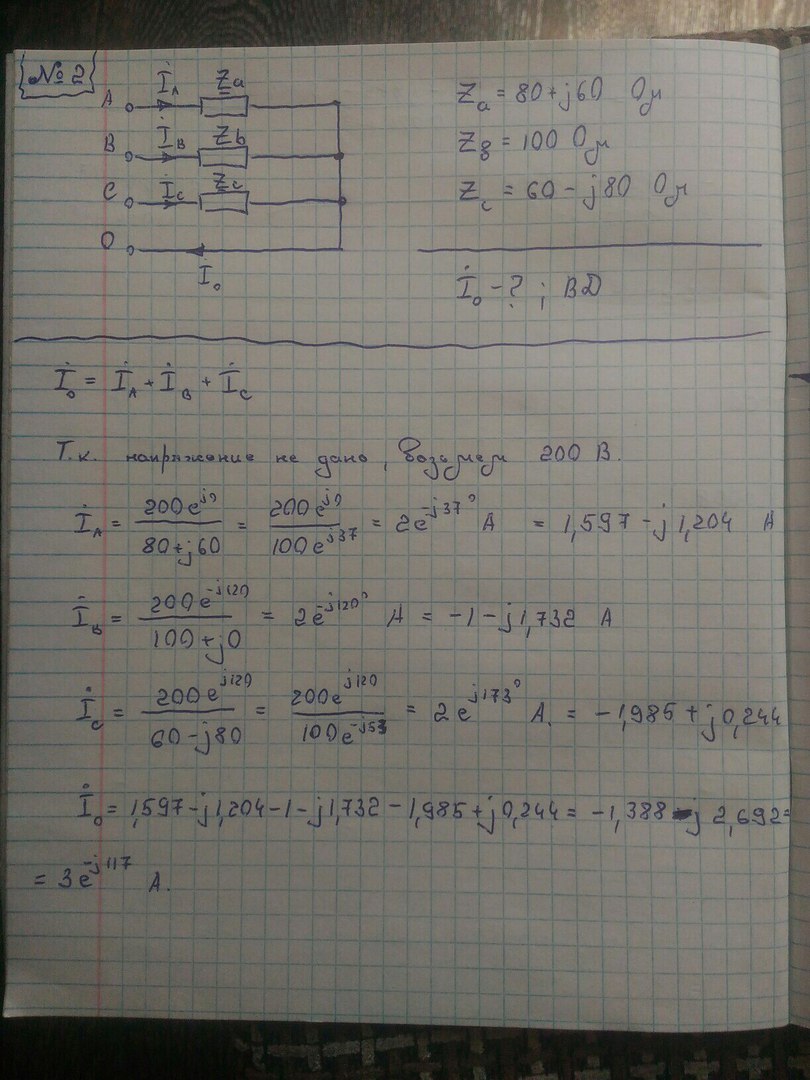 № 2
A İ_A Z_a
B İ_B Z_b
C İ_C Z_c
O
İ_o
Z_a = 80 + j60 Ом
Z_в = 100 Ом
Z_c = 60 - j80 Ом
İ_o - ? ; ВД
İ_o = İ_A + İ_B + İ_C
Т.к. напряжение не дано, возьмем 200 В.
İ_A = 200e^{j0} / (80+j60) = 200e^{j0} / 100e^{j37} = 2e^{-j37°} A = 1,597 - j1,204 A
İ_B = 200e^{-j120} / (100+j0) = 2e^{-j120°} A = -1 - j1,732 A
İ_C = 200e^{j120} / (60-j80) = 200e^{j120} / 100e^{-j53} = 2e^{j173°} A. = -1,985 + j0,244
İ_o = 1,597 - j1,204 - 1 - j1,732 - 1,985 + j0,244 = -1,388 - j 2,692 =
= 3e^{-j117} A.